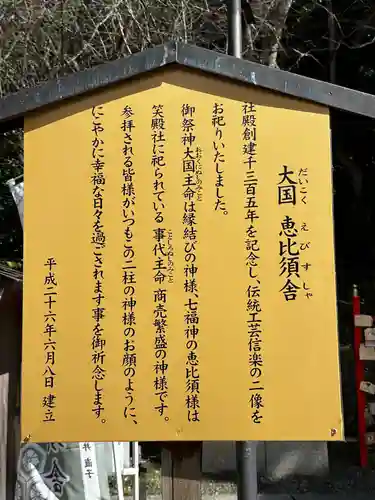 大国 恵比須舎
だいこく えびすしゃ
社殿創建千三百五年を記念し、伝統工芸信楽の二像を
お祀りいたしました。
御祭神大国主命は縁結びの神様、七福神の恵比須様は
おおくにぬしのみこと
笑殿社に祀られている 事代主命 商売繁盛の神様です。
ことしろぬしのみこと
参拝される皆様がいつもこの二柱の神様のお顔のように、
にこやかに幸福な日々を過ごされます事を御祈念します。
平成二十六年六月八日 建立